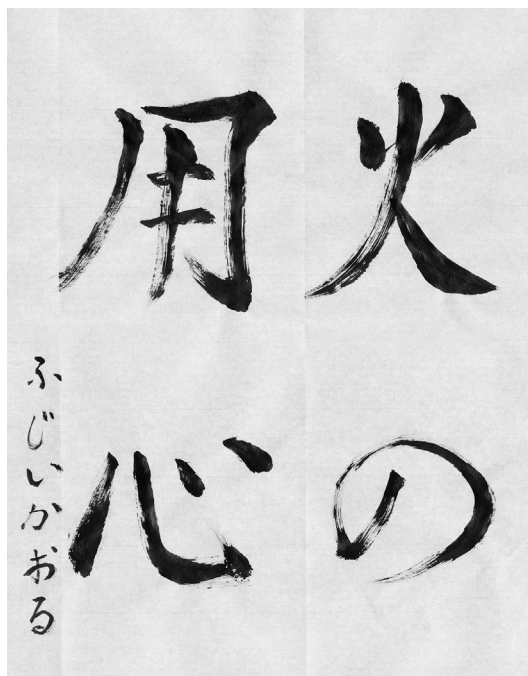 火の
用心
ふじいかおる